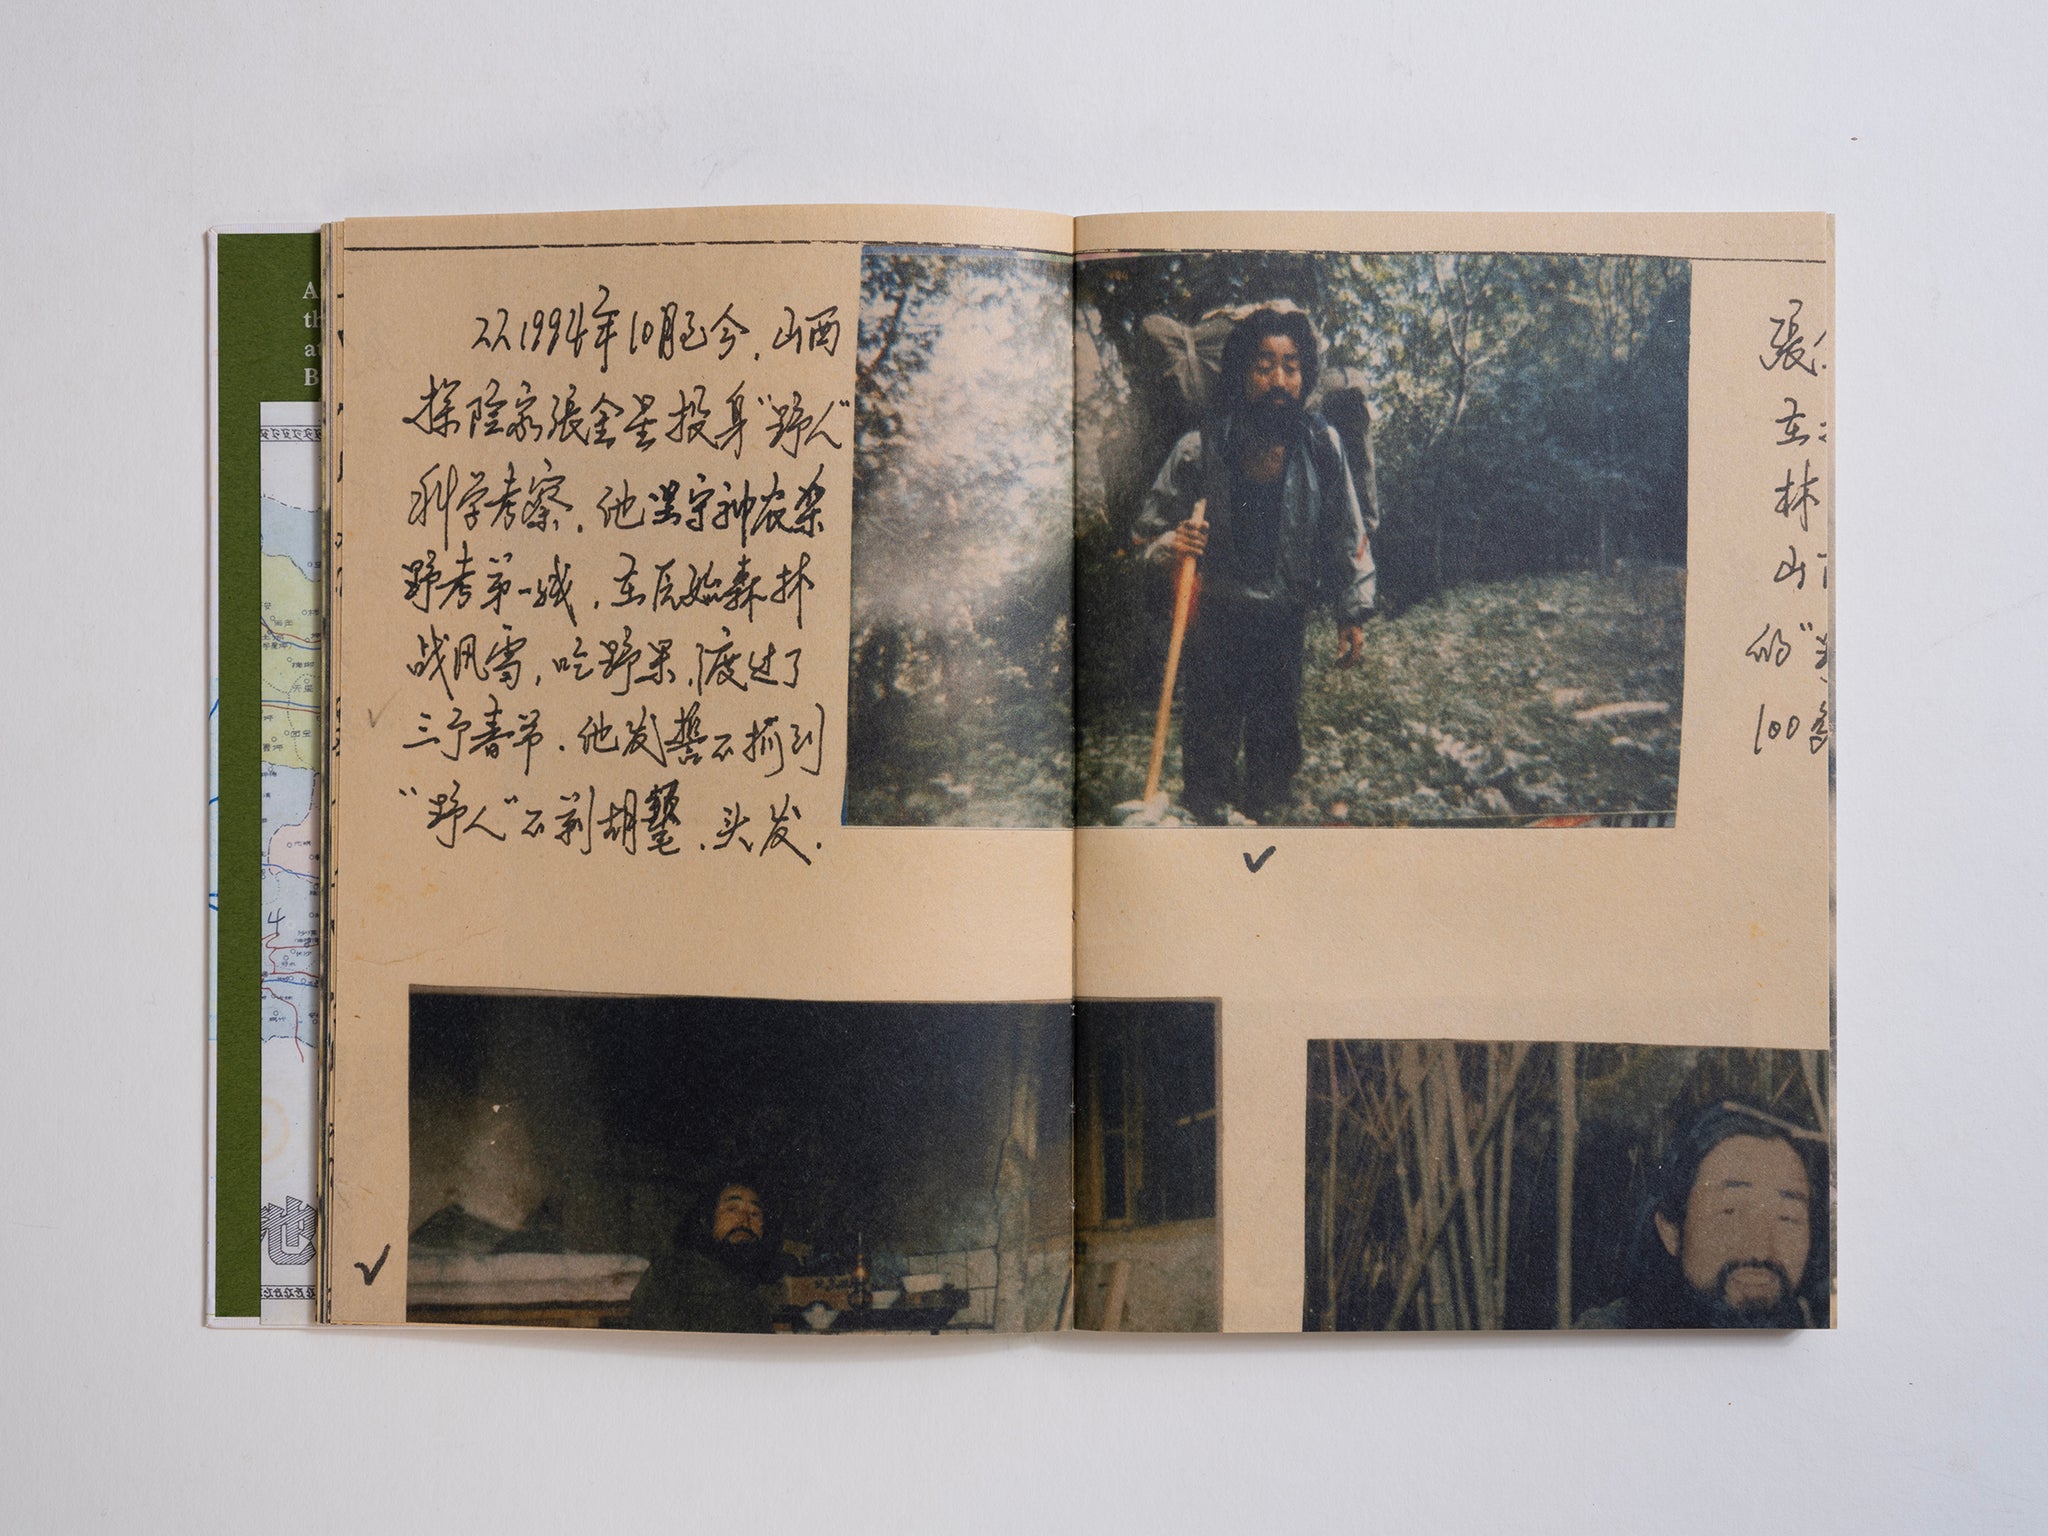 A
th
at
B
从1994年10月至今，山西
探险家張金星投身"野人"
科学考察．他坚守神农架
野考第一线，在原始森林
战风雪，吃野果，渡过了
三个春节．他发誓不抓到
"野人"不剃胡鬚、头发．
張
在
林
山
的"
100多